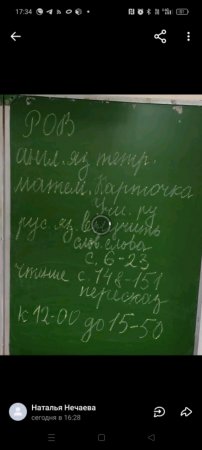 17:34
РОВ
англ. яз. тетр.
матем. Карточка
Учи. ру
рус. яз. выучить
слов. слова
с. 6-23
чтение с. 148-151
пересказ
к 12-00 до 15-50
Наталья Нечаева
сегодня в 16:28